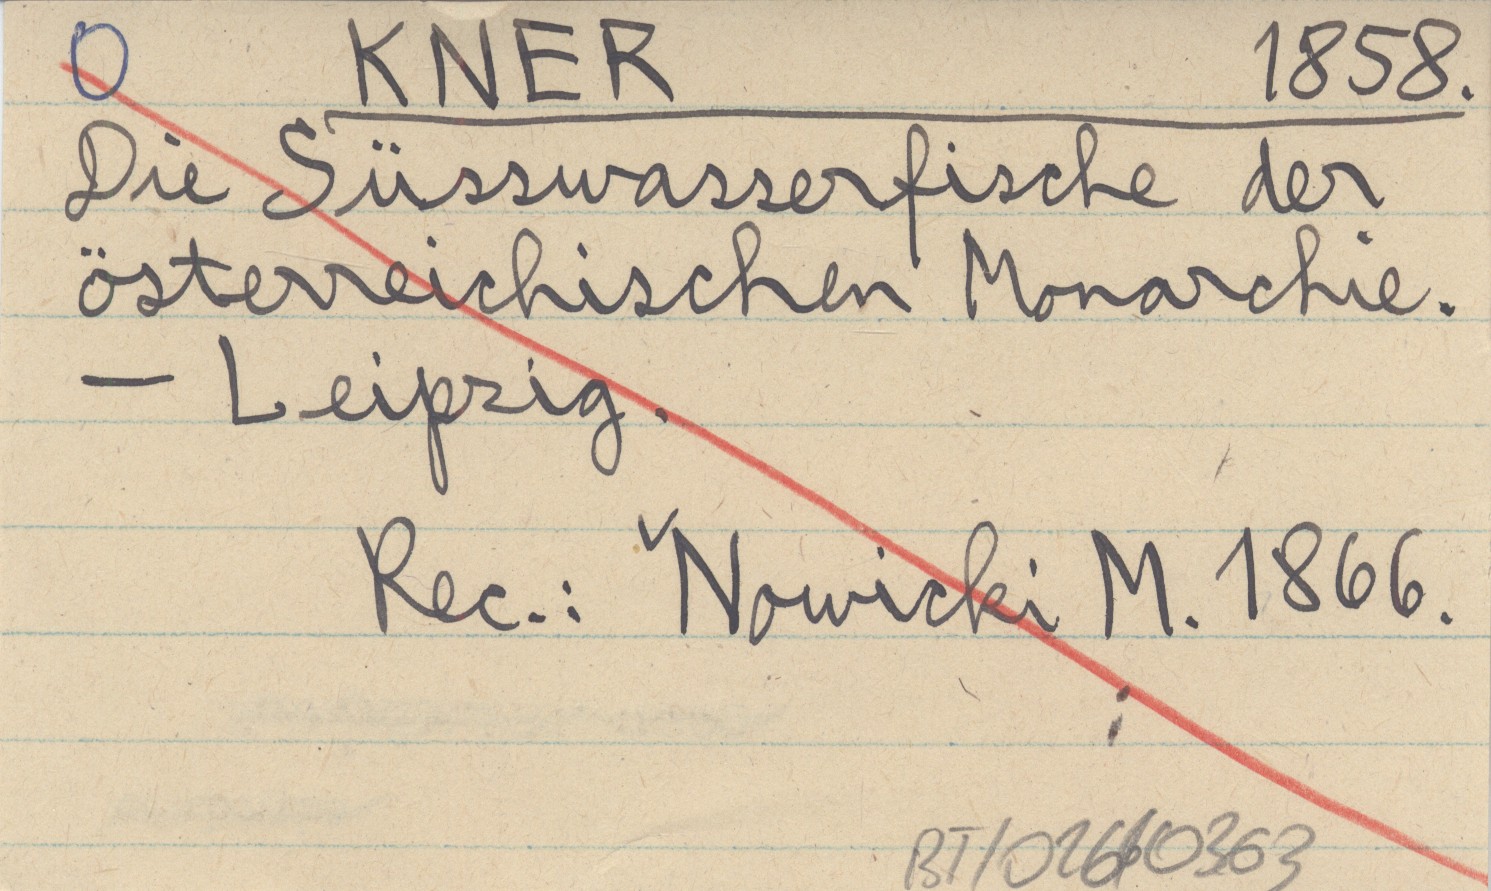 O KNER 1858.
Die Süsswasserfische der
österreichischen Monarchie.
— Leipzig.
Rec.: ✓Nowicki M. 1866.